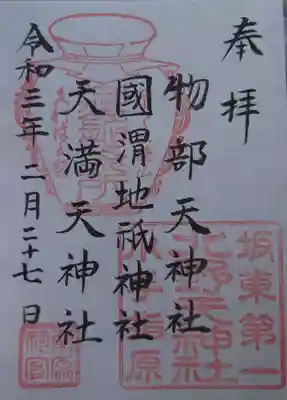 奉拝
物部天神社
國渭地祇神社
天満天神社
令和三年二月二十七日
坂東第一
北野天神社